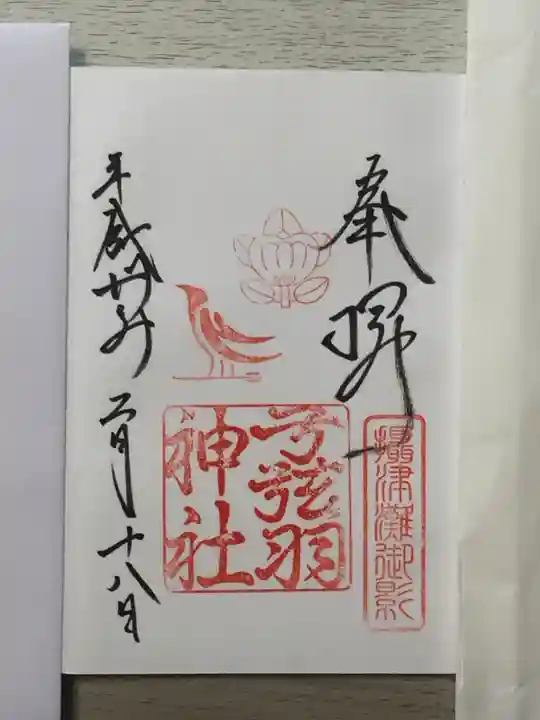 奉拝
攝津灘御影
弓弦羽
神社
平成 年 二月十八日